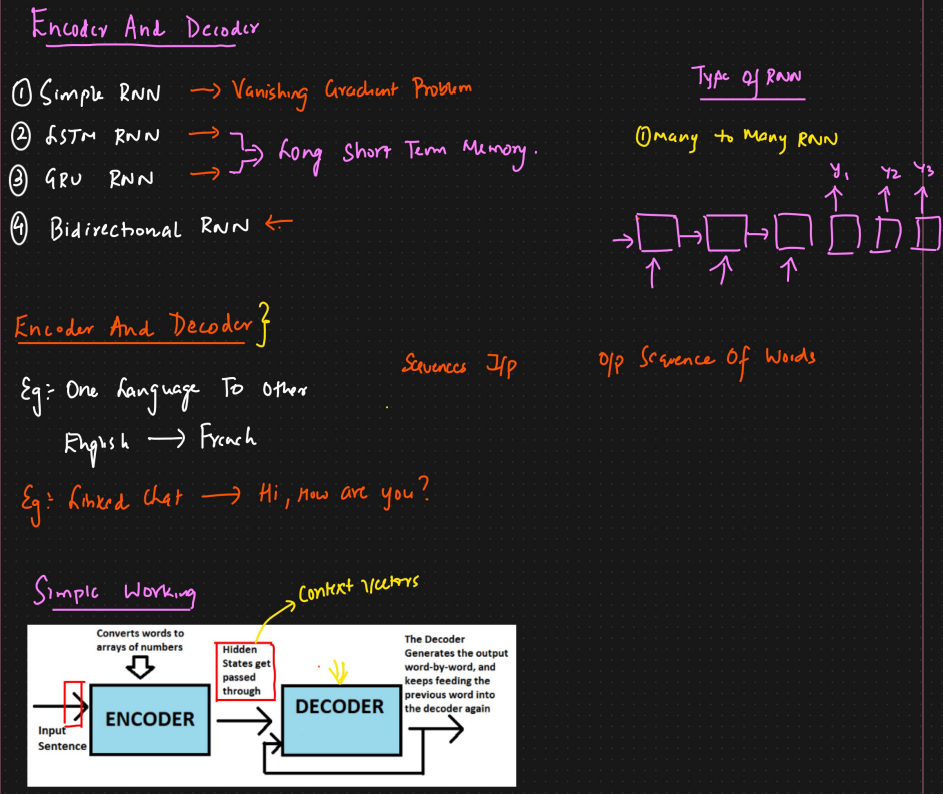 Encoder And Decoder
① Simple RNN → Vanishing Gradient Problem
② LSTM RNN →
③ GRU RNN →
Long Short Term Memory.
④ Bidirectional RNN ←
Type of RNN
① Many to Many RNN
y1 y2 y3
Encoder And Decoder}
Sequences I/p
O/p Sequence Of Words
Eg:- One Language To Other
English → French
Eg:- Linked Chat → Hi, How are you?
Simple Working
Context Vectors
Converts words to
arrays of numbers
Hidden
States get
passed
through
The Decoder
Generates the output
word-by-word, and
keeps feeding the
previous word into
the decoder again
ENCODER
DECODER
Input
Sentence